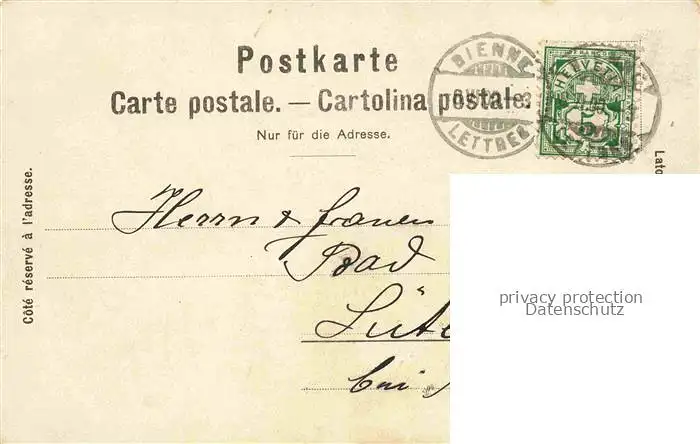 Postkarte
Carte postale. — Cartolina postale.
Nur für die Adresse.
BIENNE
LETTRES
HELVETIA
5
Côté réservé à l'adresse.
Herrn &
Bad
bei
privacy protection
Datenschutz